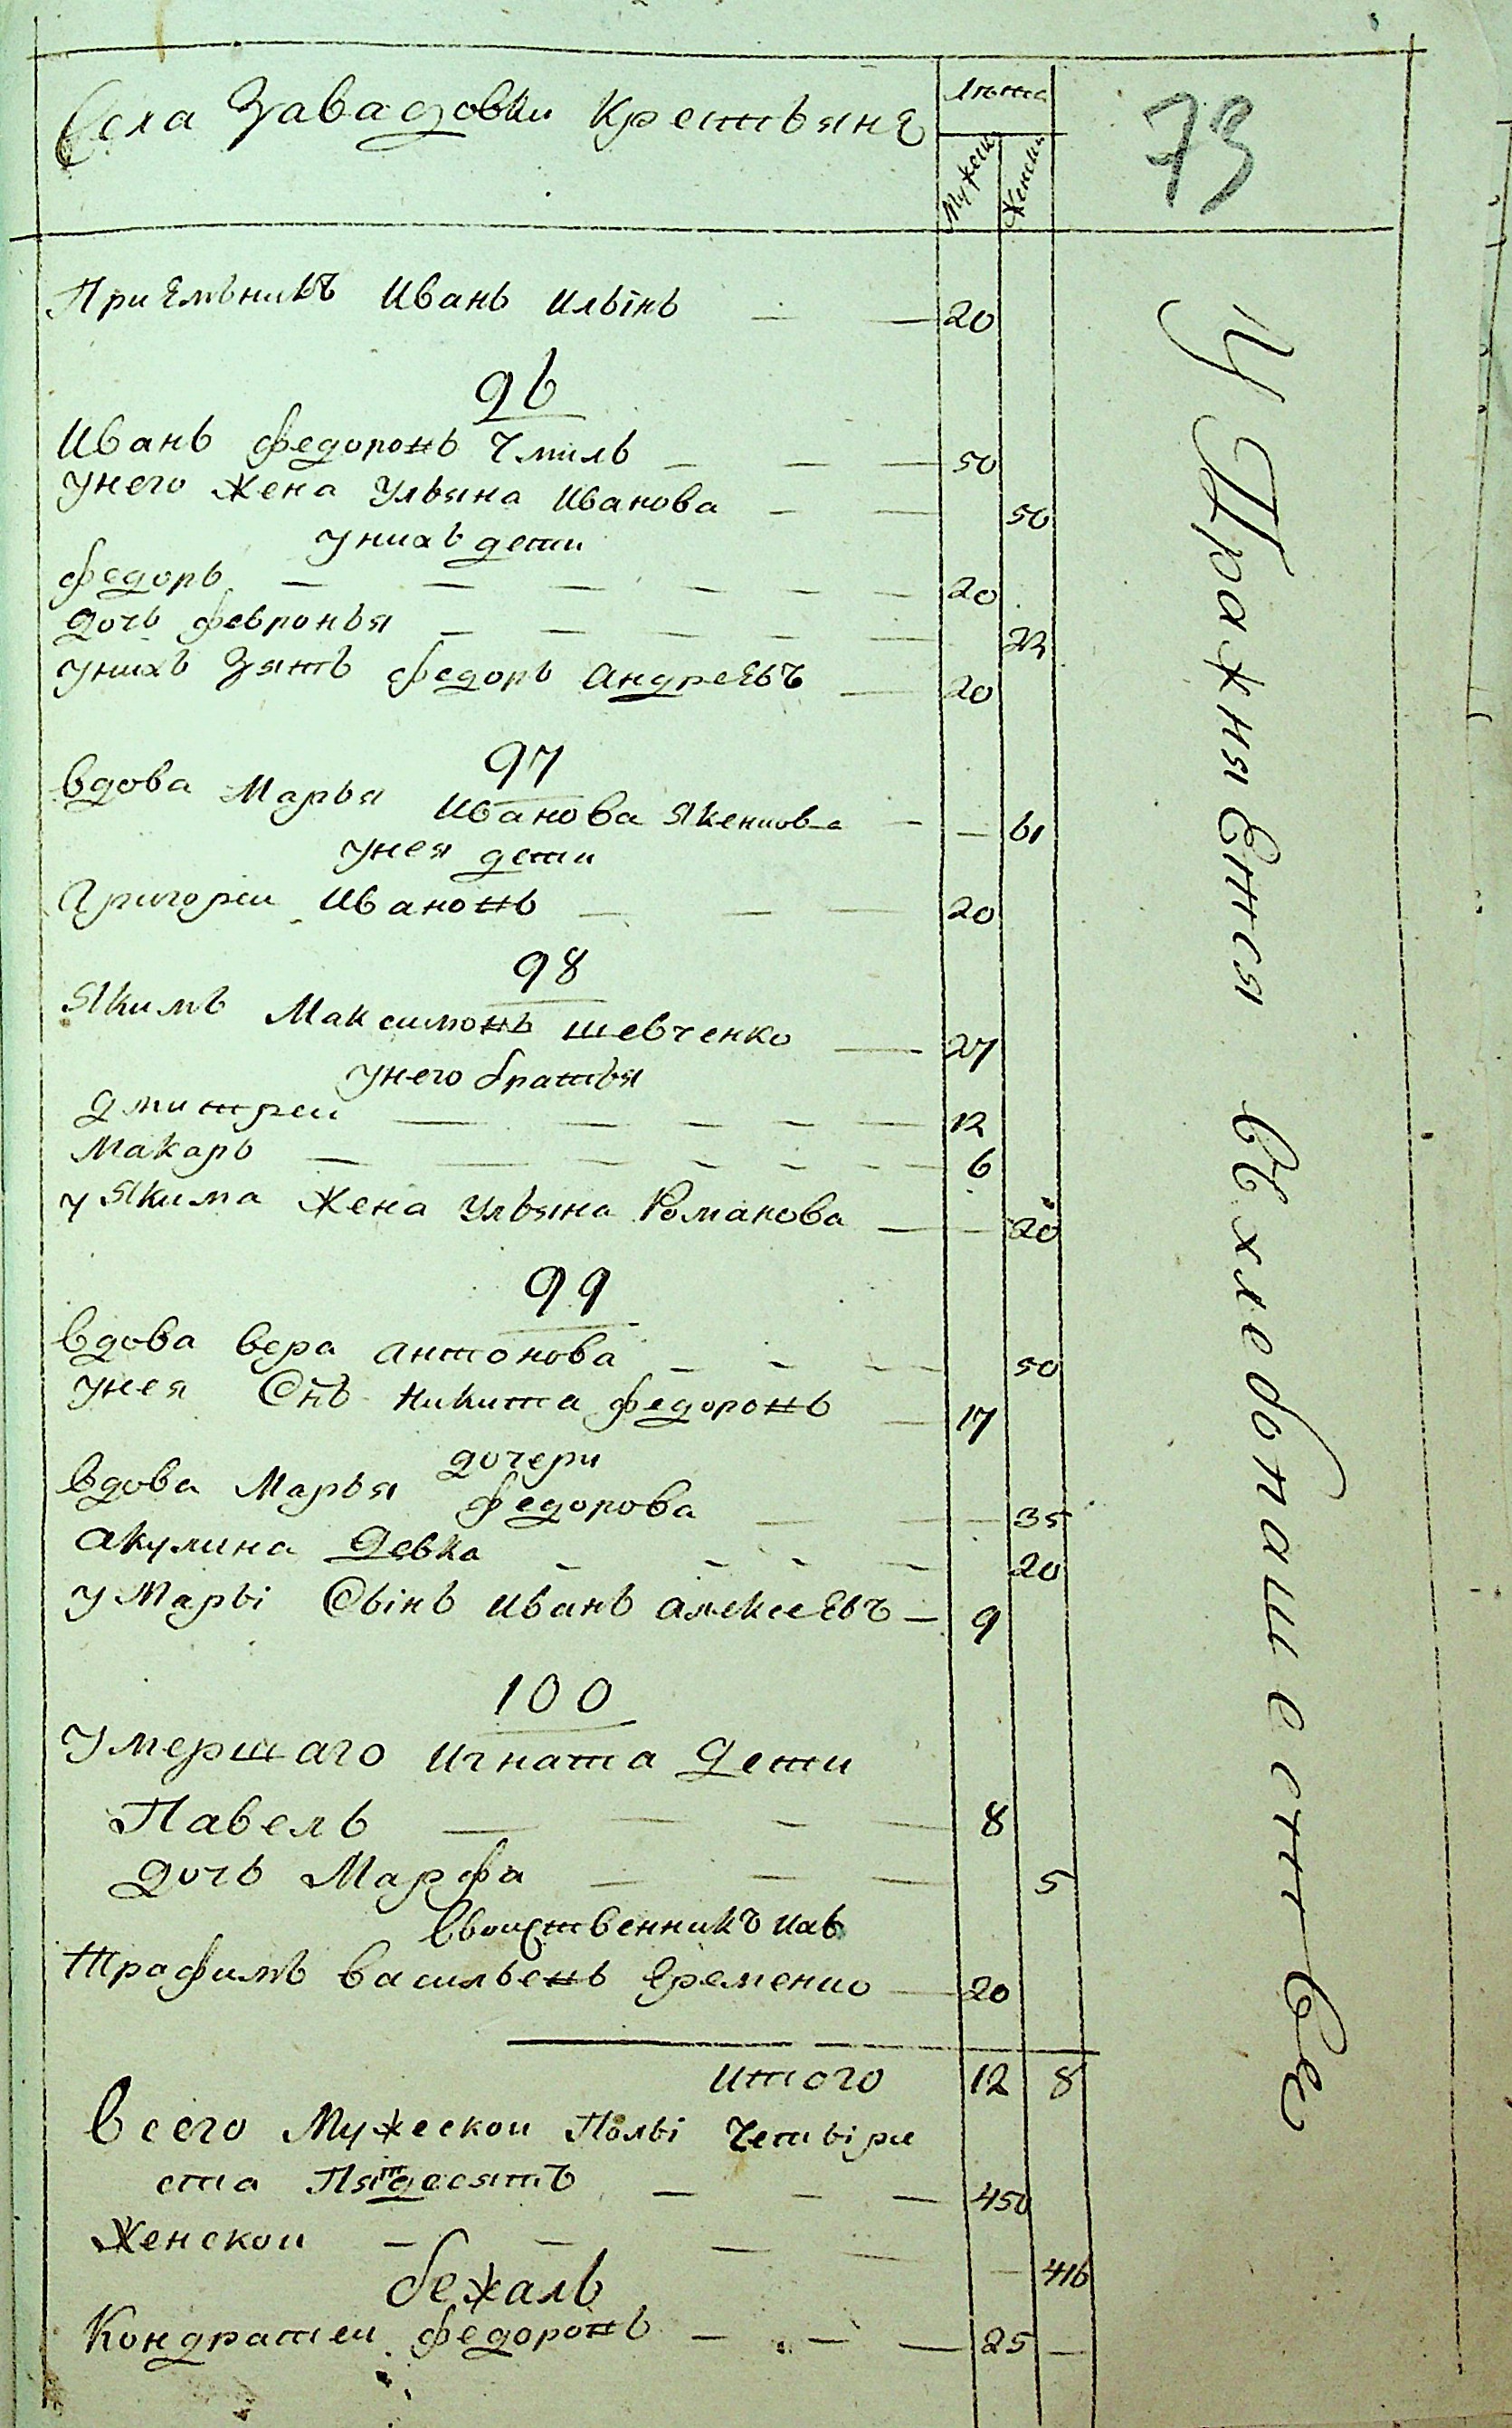 Села Завадовки Крестьяне
Лѣта
Мужески
Женски
73
Приемникъ Иванъ Ильінъ 20
96
Иванъ Федоровъ Чмиль 50
унего Жена Ульяна Иванова 50
унихъ дети
Федоръ 20
дочь Февронья 22
унихъ Зять Федоръ Андреевъ 20
97
Вдова Марья Иванова Якенкова 61
унея дети
Григореи Ивановъ 20
98
Якимъ Максимовъ Шевченко 27
унего братья
Дмитреи 12
Макаръ 6
у Якима Жена Ульяна Романова 20
99
Вдова Вера Антонова 50
унея Снъ Никита Федоровъ 17
дочери
Вдова Марья Федорова 35
Акулина Девка 20
у Марьі Сьінъ Иванъ Алексеевъ 9
100
умершаго Игната Дети
Павелъ 8
дочь Марфа 5
Своиственникъ ихъ
Трофимъ Васильевъ Еременко 20
Итого 12 8
Всего Мужескои Польі Четьіри
ста Пятдесятъ 450
Женскои 416
бежалъ
Кондратеи Федоровъ 25
Упражняется В хлебопашестве